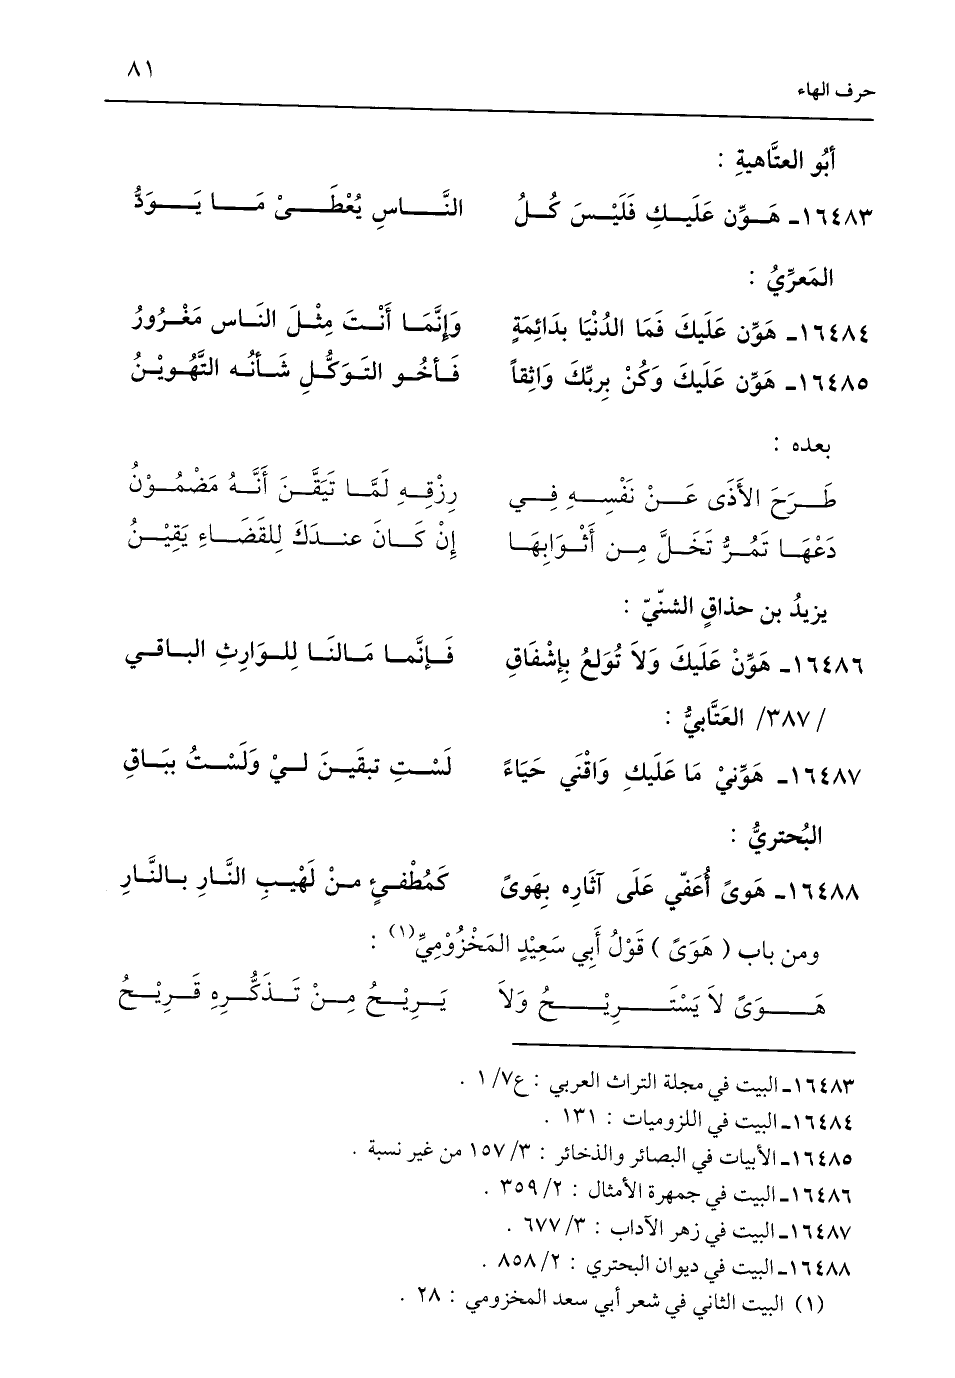 ٨١
حرف الهاء
أبُو العتَّاهيةِ :
١٦٤٨٣ـ هَوِّن عَلَيكِ فَلَيْسَ كُلُ النَّاسِ يُعْطَىْ مَا يَوَدُّ
المَعرِّيُ :
١٦٤٨٤ـ هَوِّن عَلَيكَ فَمَا الدُنْيَا بدَائِمَةٍ وَإِنَّمَا أَنْتَ مِثْلَ النَاس مَغْرُورُ
١٦٤٨٥ـ هَوِّن عَلَيكَ وَكُنْ بِربِّكَ وَاثِقاً فَأخُو التَوَكُّلِ شَأنُه التَّهْوِيْنُ
بعده :
طَرَحَ الأَذَى عَنْ نَفْسِهِ فِي رِزْقِهِ لَمَّا تَيَقَّنَ أَنَّهُ مَضْمُوْنُ
دَعْهَا تَمُرُّ تَخَلَّ مِن أَثْوَابِهَا إِنْ كَانَ عِندَكَ لِلقَضَاءِ يَقِيْنُ
يزيدُ بن حذاقٍ الشنّيّ :
١٦٤٨٦ـ هَوِّنْ عَلَيكَ وَلاَ تُوَلعُ بِإشْفَاقِ فَإنَّما مَالنَا لِلوَارِثِ البـاقي
/٣٨٧/ العَتَّابيُّ :
١٦٤٨٧ـ هَوِّنيْ مَا عَلَيكِ وَاقْني حَيَاءً لَسْتِ تبقَينَ ليْ وَلَسْتُ ببَاقِ
البُحتريُّ :
١٦٤٨٨ـ هَوىً أُعَفّي عَلَى آثَاره بِهَوىً كَمُطْفئٍ منْ لَهْيبِ النَّارِ بالنَّارِ
ومن باب ( هَوَىً ) قَوْلُ أَبِي سَعِيْدٍ المَخْزُوْمِيِّ(١) :
هَوَىً لاَ يَسْتَرِيْحُ وَلاَ يَرِيْحُ مِنْ تَذكُّرِهِ قَرِيْحُ
١٦٤٨٣ـ البيت في مجلة التراث العربي : ع٧/ ١ .
١٦٤٨٤ـ البيت في اللزوميات : ١٣١ .
١٦٤٨٥ـ الأبيات في البصائر والذخائر : ٣/ ١٥٧ من غير نسبة .
١٦٤٨٦ـ البيت في جمهرة الأمثال : ٢/ ٣٥٩ .
١٦٤٨٧ـ البيت في زهر الآداب : ٣/ ٦٧٧ .
١٦٤٨٨ـ البيت في ديوان البحتري : ٢/ ٨٥٨ .
(١) البيت الثاني في شعر أبي سعد المخزومي : ٢٨ .